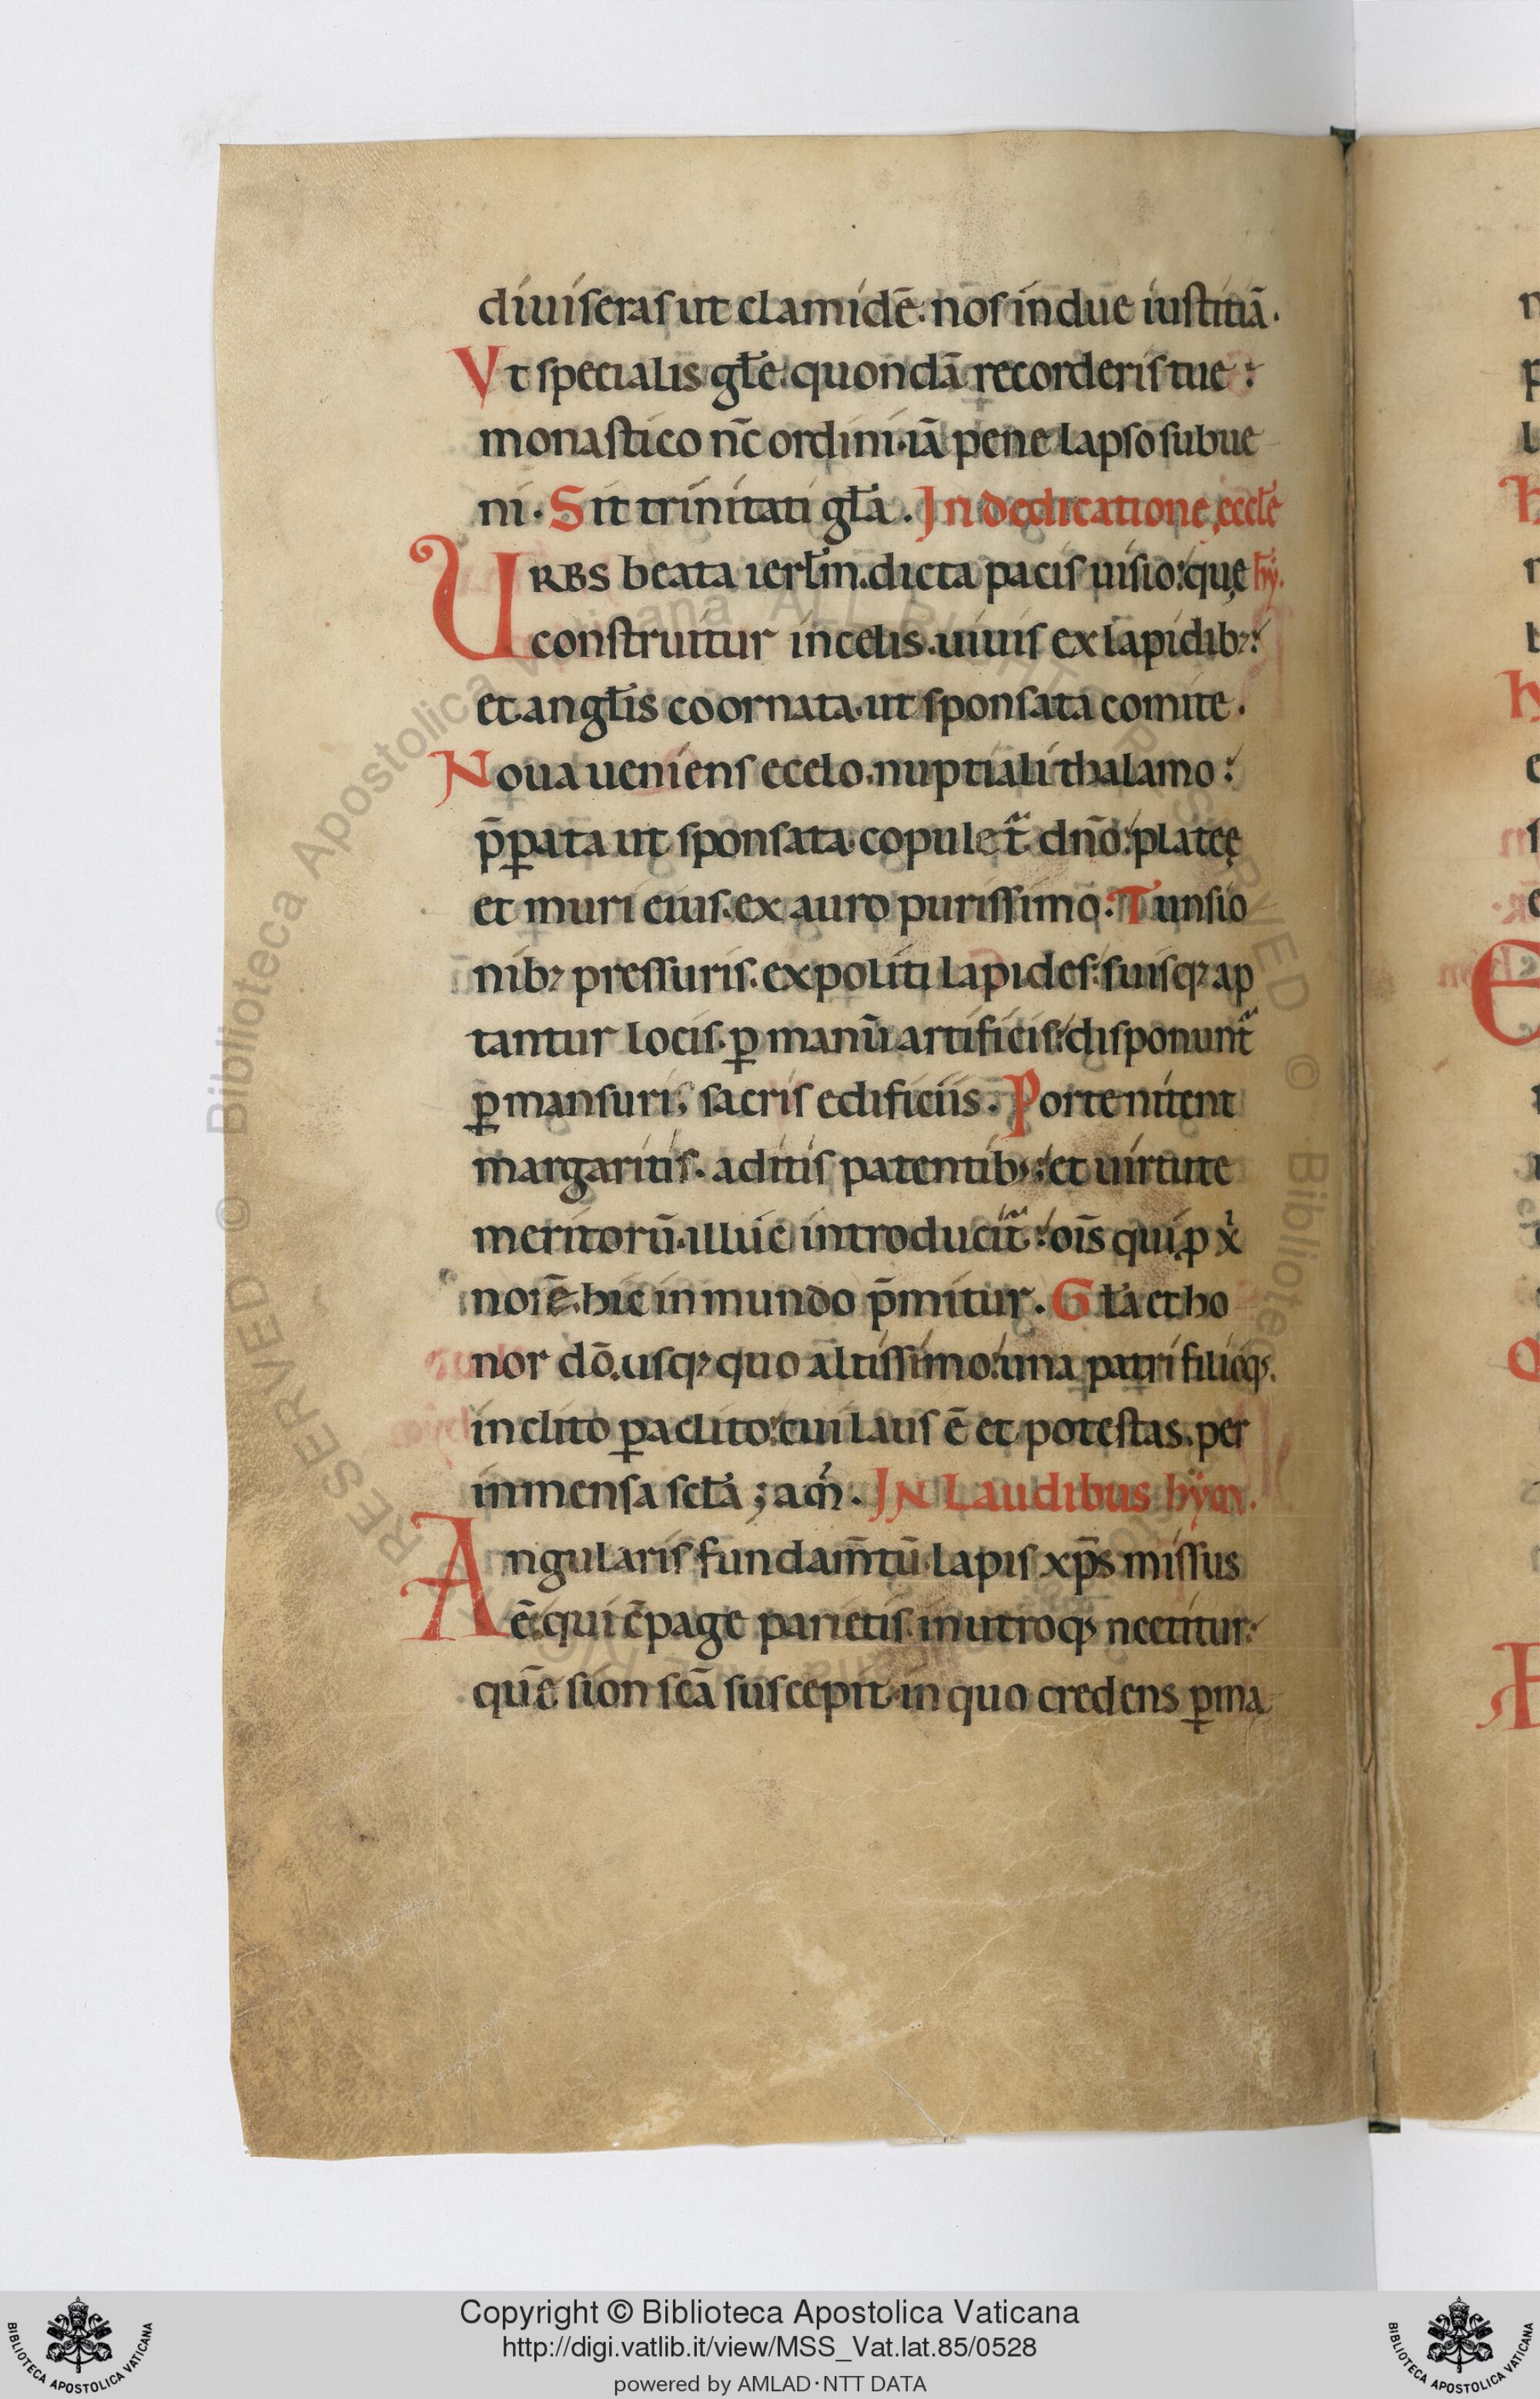 diuiseras ut clamidē. nos indue iustitiā.
Vt specialis głe. quondā recorderis tue:
monastico nc̄ ordini. iā pene lapso subue
ni. Sit trinitati gła. In dedicatione ęccłe
URBS beata ierłm. dicta pacis uisio: quę hy̅.
construitur in celis. uiuis ex lapidib;:
et angłis coornata. ut sponsata comite.
Noua ueniens e celo. nuptiali thalamo:
p̄ꝑata ut sponsata. copulet᷑ dn̄o: plateę
et muri eius. ex auro purissimo. Tunsio
nib; pressuris. expoliti lapides: suisq; ap
tantur locis. ꝑ manū artificis: disponunt᷑
ꝑmansuri, sacris edificiis. Porte nitent
margaritis. aditis patentib;: et uirtute
meritorū. illuc introducit᷑: oīs qui ꝓ xp̄i
noīe. hic in mundo p̄mitur. Gła et ho
nor dō. usq; quo altissimo: una patri filioq;.
inclito ꝑaclito: cui laus ē et potestas. per
inmensa scła; am̄. IN Laudibus hẏm̄.
Angularis fundam̄tū. lapis xp̄s missus
ē. qui c̄page parietis. in utroq; nectitur:
quē sion scā suscepit. in quo credens ꝑma
© Biblioteca Apostolica Vaticana ALL RIGHTS RESERVED
Copyright © Biblioteca Apostolica Vaticana
http://digi.vatlib.it/view/MSS_Vat.lat.85/0528
powered by AMLAD·NTT DATA
BIBLIOTECA APOSTOLICA VATICANA
BIBLIOTECA APOSTOLICA VATICANA